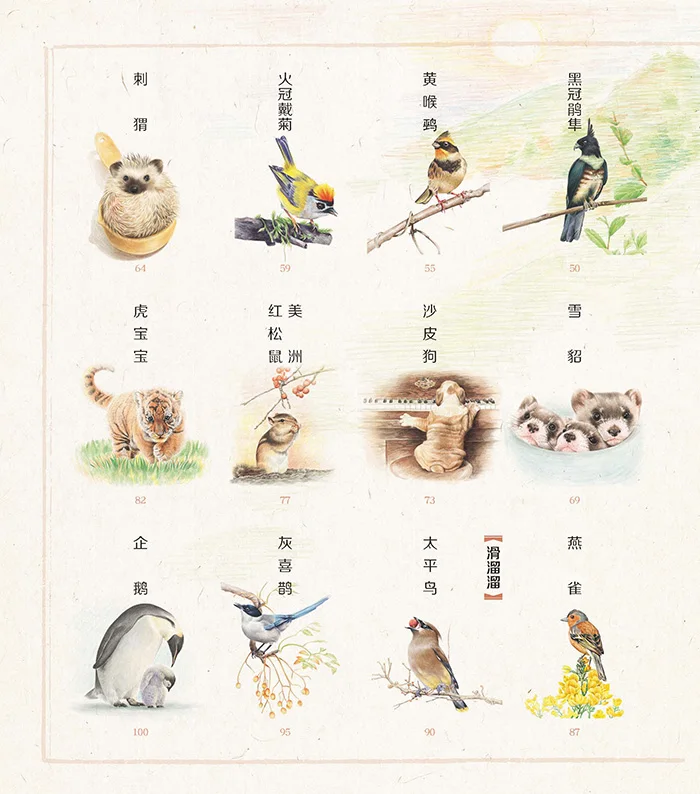 黑冠鹃隼
50
黄喉鹀
55
火冠戴菊
59
刺猬
64
雪貂
69
沙皮狗
73
美洲
红松鼠
77
虎宝宝
82
燕雀
87
【滑溜溜】
太平鸟
90
灰喜鹊
95
企鹅
100